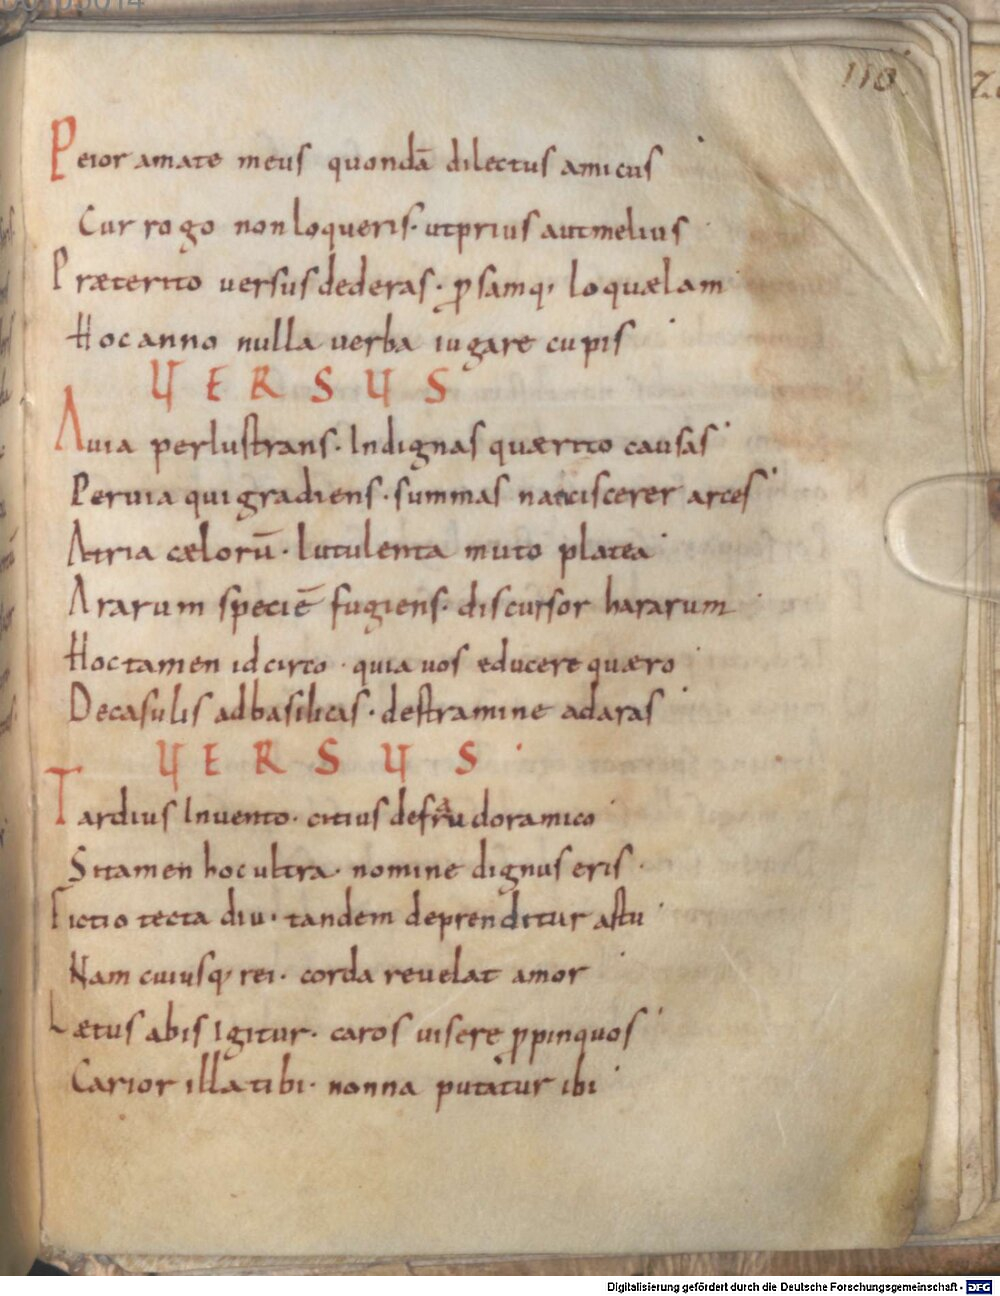 110.
Peior amate meus quondā dilectus amicus
Cur rogo non loqueris· ut prius aut melius
Præterito versus dederas· ꝓsamq; loquælam
Hoc anno nulla verba iugare cupis
VERSUS
Avia perlustrans· Indignas quærito causas
Pervia qui gradiens· summas nancisceret arces
Atria cælorū· lutulenta muto platea
Ararum speciē fugiens· discursor hararum
Hoc tamen idcirco· quia vos educere quæro
De casulis ad basilicas· destramine ad aras
VERSUS
Tardius Invento· citius defraudor amico
Si tamen hoc ultra· nomine dignus eris
Fictio tecta diu· tandem deprenditur astu
Nam cuiusq; rei· corda revelat amor
Lætus abis Igitur· caros visere ꝓpinquos
Carior illa tibi· nonna putatur ibi
Digitalisierung gefördert durch die Deutsche Forschungsgemeinschaft - DFG